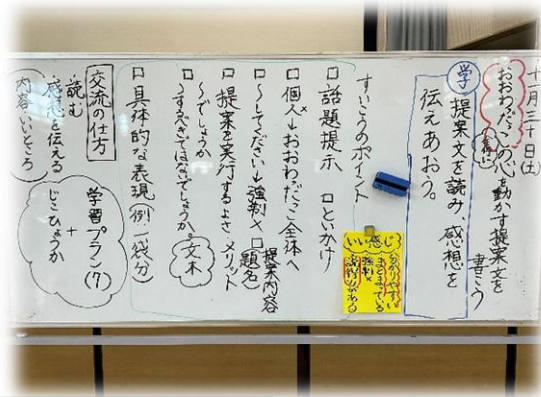 十一月三十日(土)
おおわだっこの心を動かす提案文を
書こう
学
提案文を読み、感想を
伝えあおう。
いい感じ
わかりやすい
まとまっている
強制×
説得力がある
すいこうのポイント
□話題提示 □といかけ
□個人×→おおわだっこ全体へ
□〜してください→強制× □提案内容
題名
□提案を実行するよさ メリット
〜でしょうか
□〜すべきではないでしょうか。 文末
□具体的な表現(例 一袋分)
交流の仕方
・読む
・感想を伝える
内容・いいところ
学習プラン(7)
+
じこひょうか